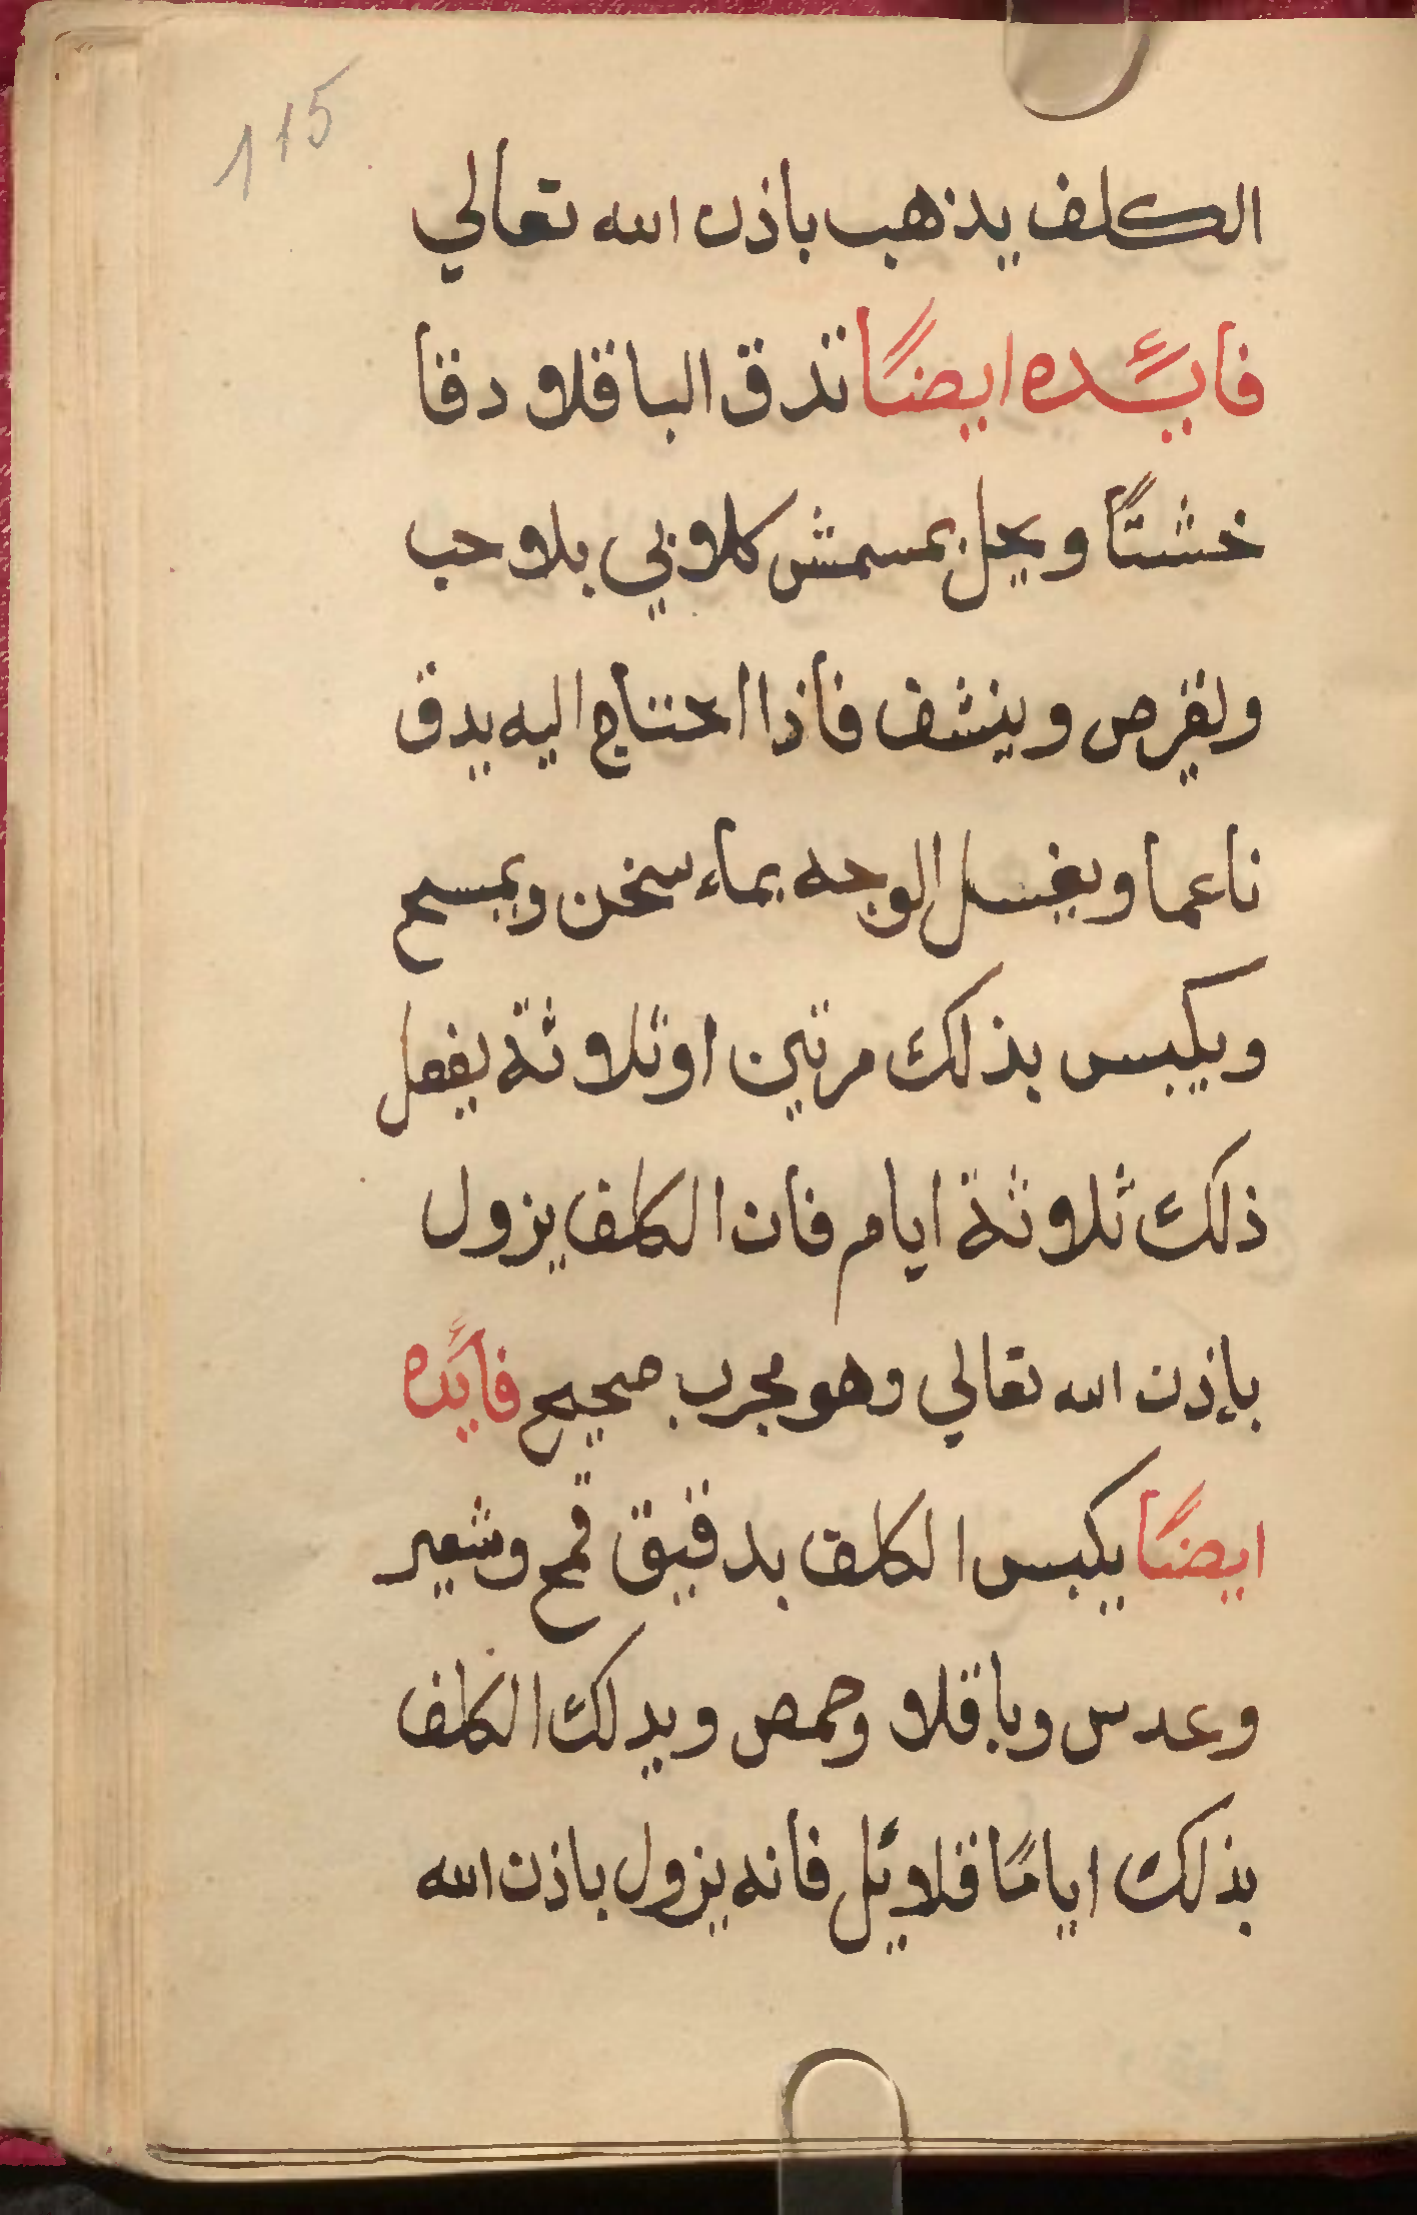 115
الكلف يذهب باذن الله تعالي
فائده ايضًا تدق الباقلا دقا
خشتًا ويحل بمسمش كلابي بلا حب
ويقرص وينشف فاذا احتاج اليه يدق
ناعما ويغسل الوجه بماء سخن ويمسح
ويكبس بذلك مرتين او ثلاثة يفعل
ذلك ثلاثة ايام فان الكلف يزول
بإذن الله تعالي وهو مجرب صحيح فائده
ايضًا يكبس الكلف بدقيق قمح وشعير
وعدس وباقلا وحمص ويدلك الكلف
بذلك ايامًا قلائل فانه يزول باذن الله